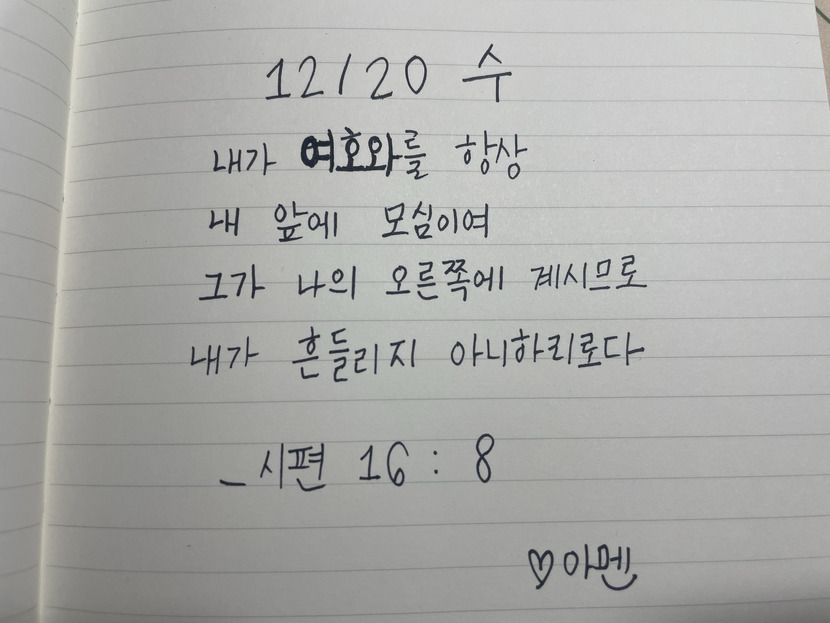 12/20 수
내가 여호와를 항상
내 앞에 모심이여
그가 나의 오른쪽에 계시므로
내가 흔들리지 아니하리로다
_시편 16 : 8
♡아멘